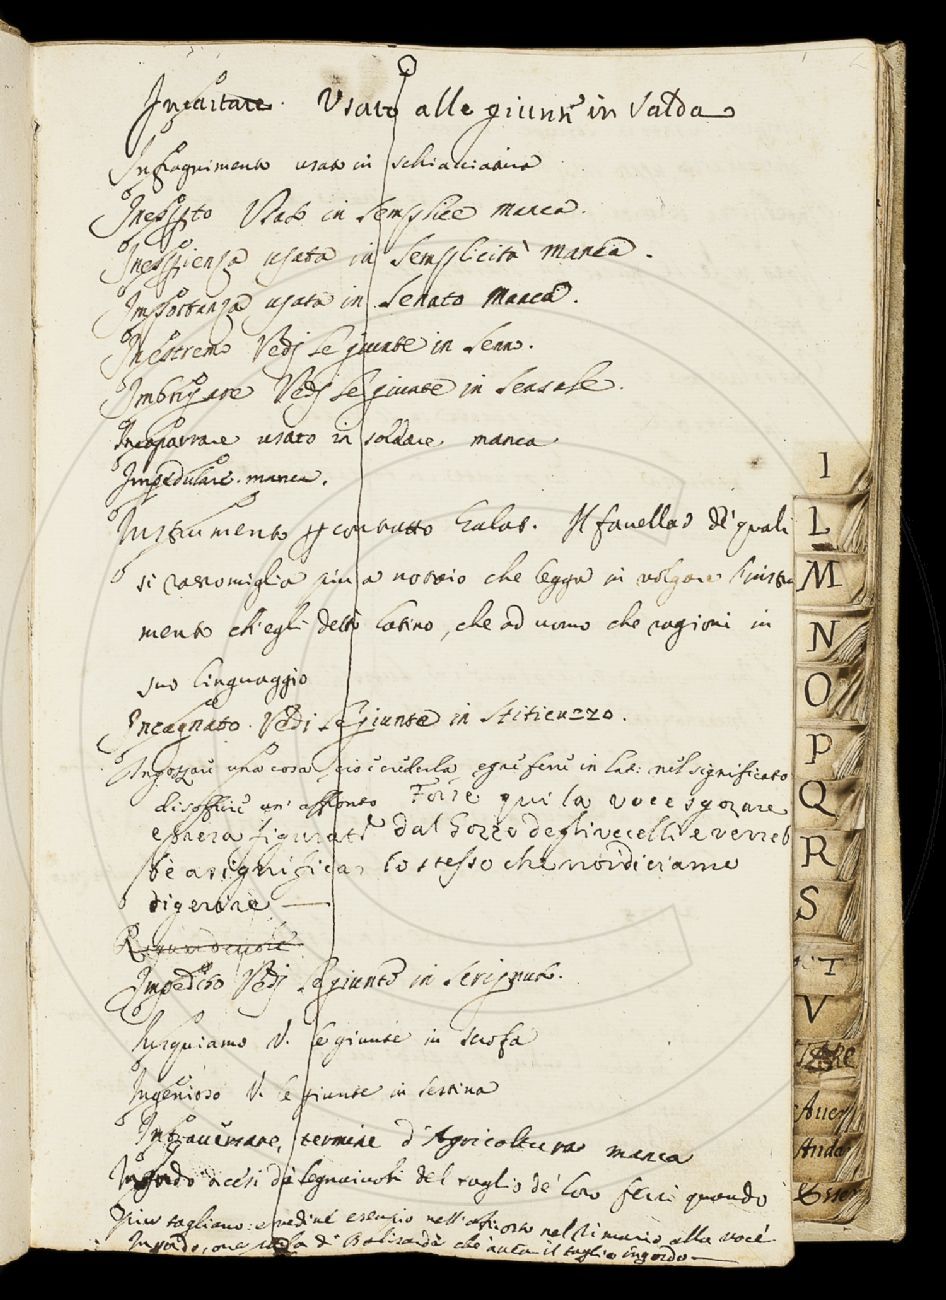 Incastare. Usato alle giunte in Salda
Infragnimento usato in schiacciatura
Inesperto Usato in Semplice manca.
Inesperienza usata in Semplicità manca.
Importanza usata in Senato manca.
In estremo Vedi le giunte in Senno.
Imbrigare Vedi le giunte in Sensale.
Incaparrare usato in soldare manca
Impadulare. manca.
Instrumento per contratto Galat. Il favellar de' quali
si rassomiglia più a notaio che legga in volgare l'instru
mento ch'egli dettò latino, che ad uomo che ragioni in
suo linguaggio
Incagnato. Vedi le giunte in Stiticuzzo.
Ingozzare una cosa, cioè crederla, e gne ferre in Lat: nel significato
di soffrire un' affronto Forse qui la voce sgozzare
e presa figurata dal Gozzo degli ucelli e verreb
be a significar lo stesso che noi diciamo
digerire
Impedito Vedi le giunte in Serignuto.
Iusquiamo V. le giunte in scrofa
Ingenioso V. le giunte in sestina
Intraversare, termine d'Agricoltura manca
Ingordo dicesi da legnaiuoli del taglio de' loro ferri quando
più tagliano: e vedine esempio nell' Ariosto nel Rimario alla voce
Ingordo, ove parla di Balisarda che avea il taglio ingordo
I
L
M
N
O
P
Q
R
S
T
V
Aver
Anda
Esser